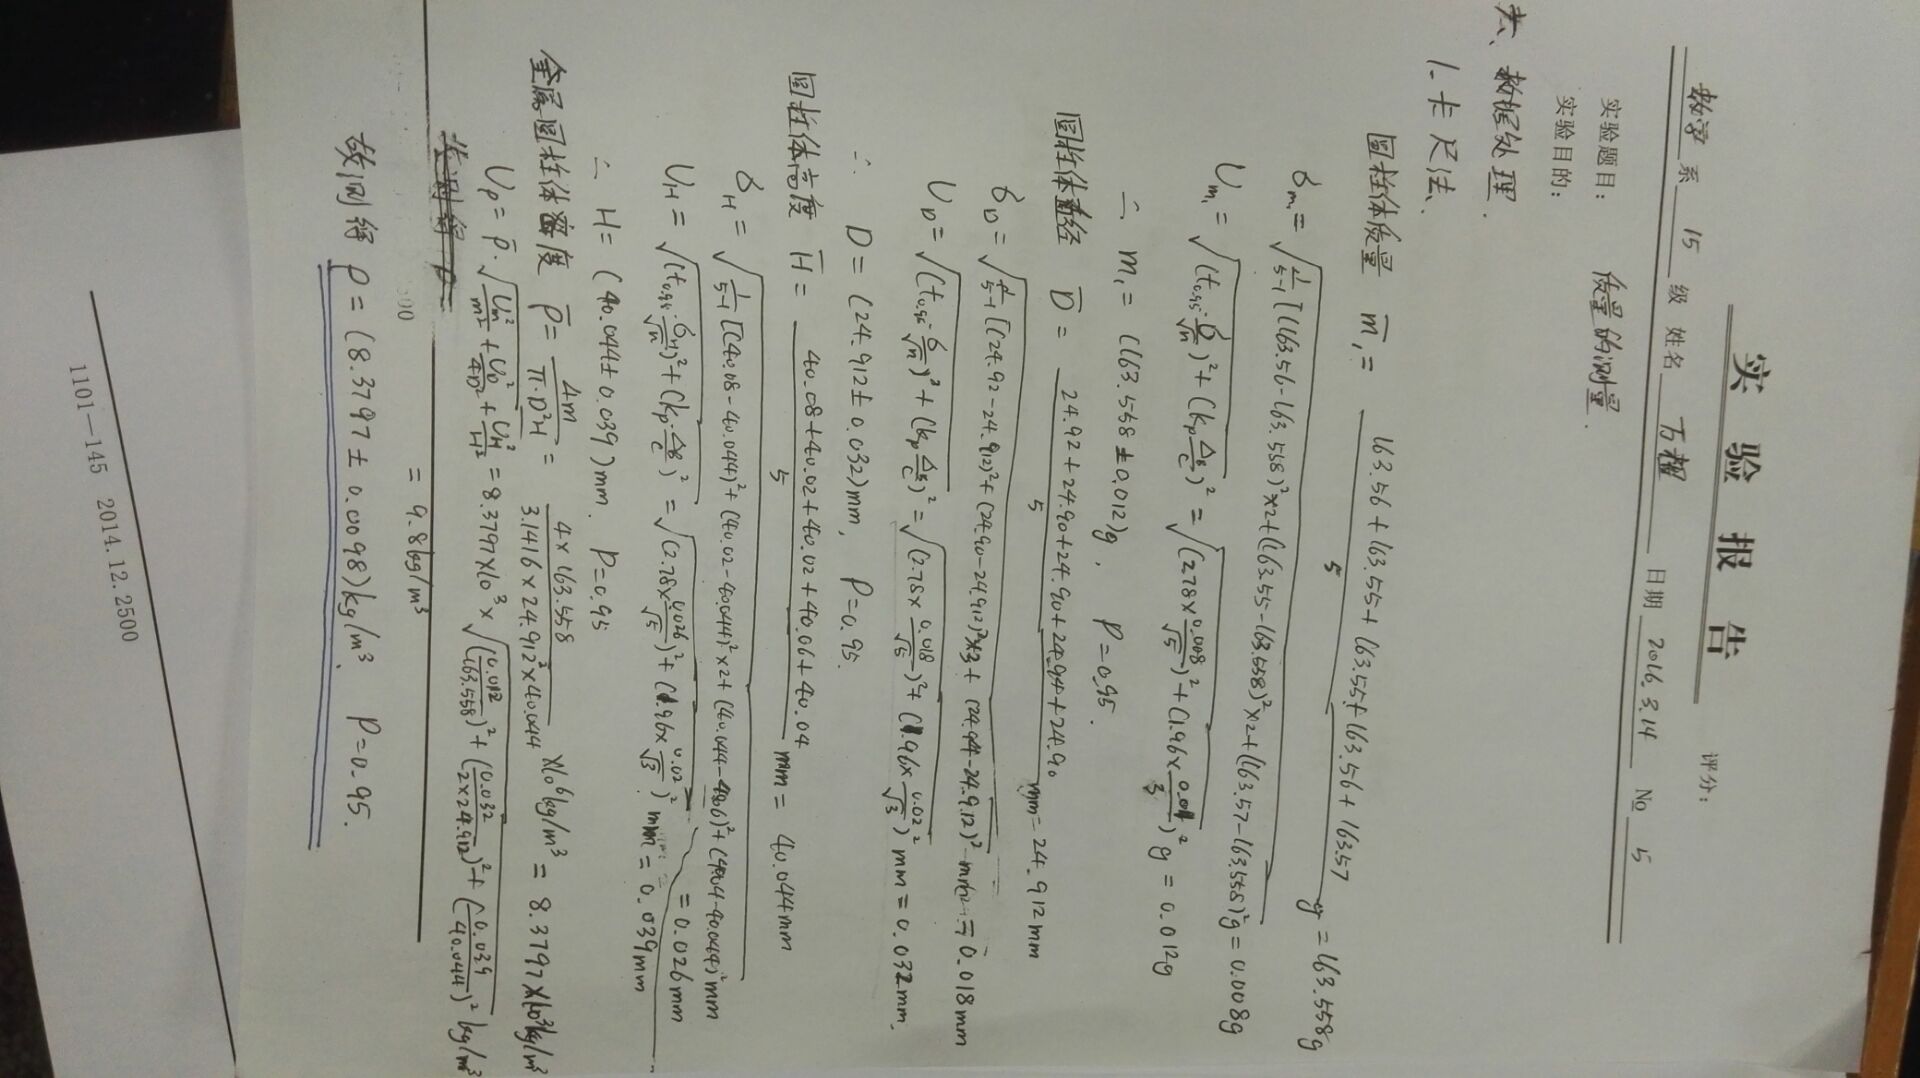 实验报告
评分:
数学 系 15 级 姓名 万耀 日期 2016.3.14 No 5
实验题目: 质量的测量.
实验目的:
六、数据处理.
1-卡尺法.
圆柱体质量 m̄₁ = (163.56+163.55+163.55+163.56+163.57)/5 g = 163.558g
δm₁ = √(1/(5-1) [(163.56-163.558)²×2+(163.55-163.558)²×2+(163.57-163.558)²]) g = 0.008g
Um₁ = √((t₀.₉₅·σ/√n)²+(kp Δ8/C)²) = √((2.78×0.008/√5)²+(1.96×0.01/3)²) g = 0.012g
∴ m₁ = (163.558±0.012)g, P=0.95.
圆柱体直径 D̄ = (24.92+24.90+24.90+24.94+24.90)/5 mm = 24.912mm
δD = √(1/(5-1) [(24.92-24.912)²+(24.90-24.912)²×3+(24.94-24.912)²]) mm = 0.018mm
UD = √((t₀.₉₅·σ/√n)²+(kp Δ8/C)²) = √((2.78×0.018/√5)²+(1.96×0.02/√3)²) mm = 0.032mm.
∴ D=(24.912±0.032)mm, P=0.95.
圆柱体高度 H̄ = (40.08+40.02+40.02+40.06+40.04)/5 mm = 40.044mm
δH = √(1/(5-1) [(40.08-40.044)²+(40.02-40.044)²×2+(40.044-40.06)²+(40.04-40.044)²]) mm = 0.026mm
UH = √((t₀.₉₅·σH/√n)²+(kp·Δ8/C)²) = √((2.78×0.026/√5)²+(1.96×0.02/√3)²) mm = 0.039mm
∴ H=(40.044±0.039)mm. P=0.95
金属圆柱体密度 ρ̄ = 4m/(π·D²H) = (4×163.558)/(3.1416×24.912²×40.044) ×10⁶kg/m³ = 8.3797×10³kg/m³
Uρ = ρ̄·√(Um²/m²+UD²/4D²+UH²/H²) = 8.3797×10³×√((0.012/163.558)²+(0.032/(2×24.912))²+(0.039/40.044)²) kg/m³
= 9.8kg/m³
故测得 ρ=(8.3797±0.0098)kg/m³. P=0.95.
1101—145 2014.12.2500